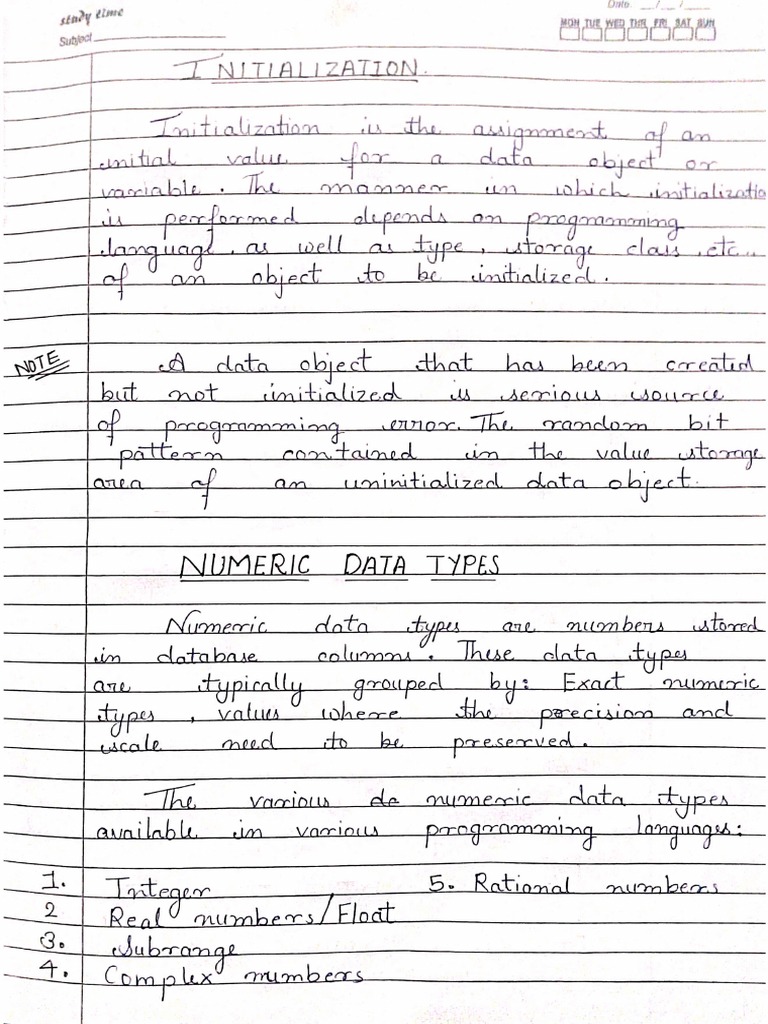 study time
Subject
Date __/__/__
MON TUE WED THR FRI SAT SUN
INITIALIZATION.
Initialization is the assignment of an
initial value for a data object or
variable. The manner in which initializatio
is performed depends on programming
language, as well as type, storage class, etc..
of an object to be initialized.
NOTE
A data object that has been created
but not initialized is serious source
of programming error. The random bit
pattern contained in the value storage
area of an uninitialized data object.
NUMERIC DATA TYPES
Numeric data types are numbers stored
in database columns. These data types
are typically grouped by: Exact numeric
types, values where the precision and
scale need to be preserved.
The various de numeric data types
available in various programming languages:
1. Integer 5. Rational numbers
2 Real numbers/Float
3. Subrange
4. Complex numbers